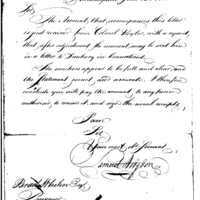 Sir,
The Account, that accompanies this letter
is just received from Colonel Baylor, with a request
that, after adjustment, the amount may be sent him
in a letter to Danbury in Connecticut.
The vouchers appear to be full and clear, and
the statement
and accurate. I therefore
conclude you will pay the amount, to any person
authorized, to receive it, and sign the usual receipts.
I am
Sir
Your most obt Servant
Samuel Hodgdon
Whelen Esqr